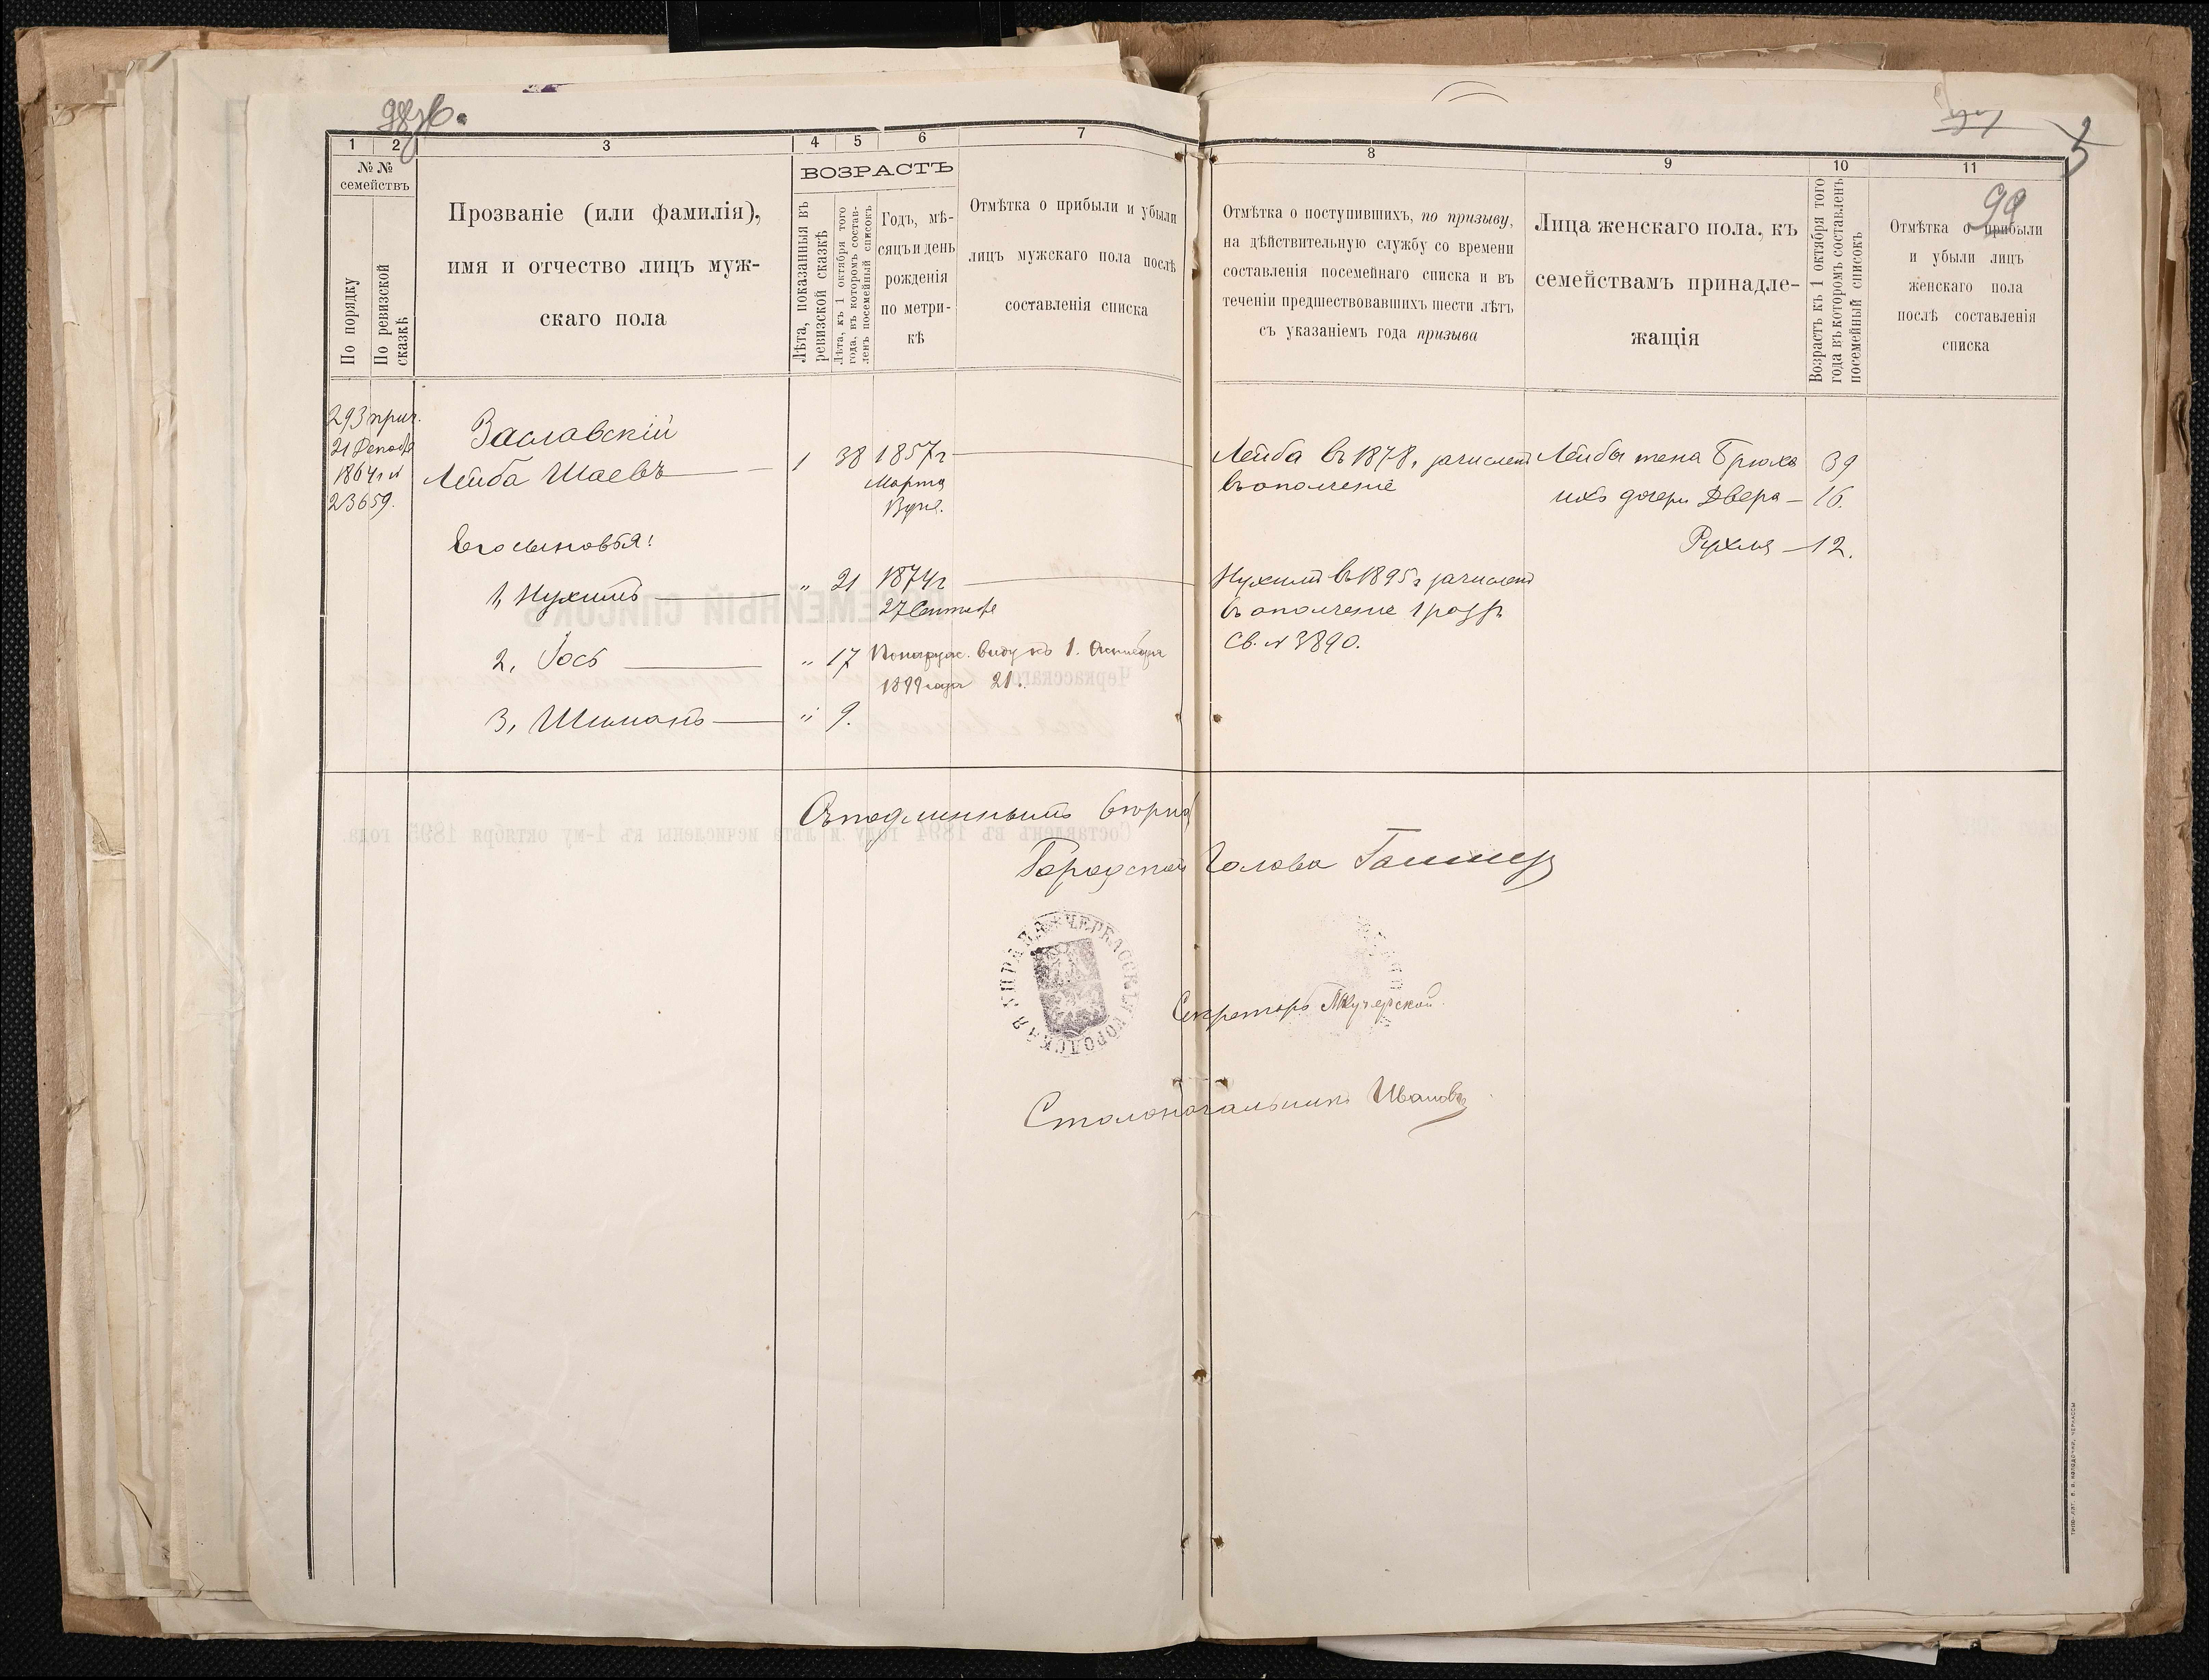 98
1
2
3
4
5
6
7
№ №
семействъ
По порядку
По ревизской
сказкѣ
Прозваніе (или фамилія),
имя и отчество лицъ муж-
скаго пола
ВОЗРАСТЪ
Лѣта, показанныя въ
ревизской сказкѣ
Лѣта, къ 1 октября того
года, въ которомъ состав-
ленъ посемейный списокъ
Годъ, мѣ-
сяцъ и день
рожденія
по метри-
кѣ
Отмѣтка о прибыли и убыли
лицъ мужскаго пола послѣ
составленія списка
293 прич.
21 Декабр
1864 г. №
23659.
Заславскій
Лейба Шаевъ
1
38
1857 г
Марта
Его сыновья:
1, Нухимъ
„
21
1874 г
27 Сентябр
2, Іось
„
17
По наруж. виду къ 1. Октября
1899 года 21.
3, Шимонъ
„
9.
Съ подлиннымъ вѣрно
Городской Голова
ЧЕРКАССКАЯ ГОРОДСКАЯ УПРАВА
Секретарь
Столоначальникъ Ивановъ
8
9
10
11
99
Отмѣтка о поступившихъ, по призыву,
на дѣйствительную службу со времени
составленія посемейнаго списка и въ
теченіи предшествовавшихъ шести лѣтъ
съ указаніемъ года призыва
Лица женскаго пола, къ
семействамъ принадле-
жащія
Возрастъ къ 1 октября того
года въ которомъ составленъ
посемейный списокъ
Отмѣтка о прибыли
и убыли лицъ
женскаго пола
послѣ составленія
списка
Лейба въ 1878, зачисленъ
въ ополченіе
Лейбы жена Брюха
39
ихъ дочери Двера —
16.
Рухля —
12.
Нухимъ въ 1895 г зачисленъ
въ ополченіе 1 разр.
Св. № 3890.
ПОСЕМЕЙНЫЙ СПИСОКЪ
Черкасскаго
Составленъ въ 1894 году и лѣта исчислены къ 1-му октября 1895 года.